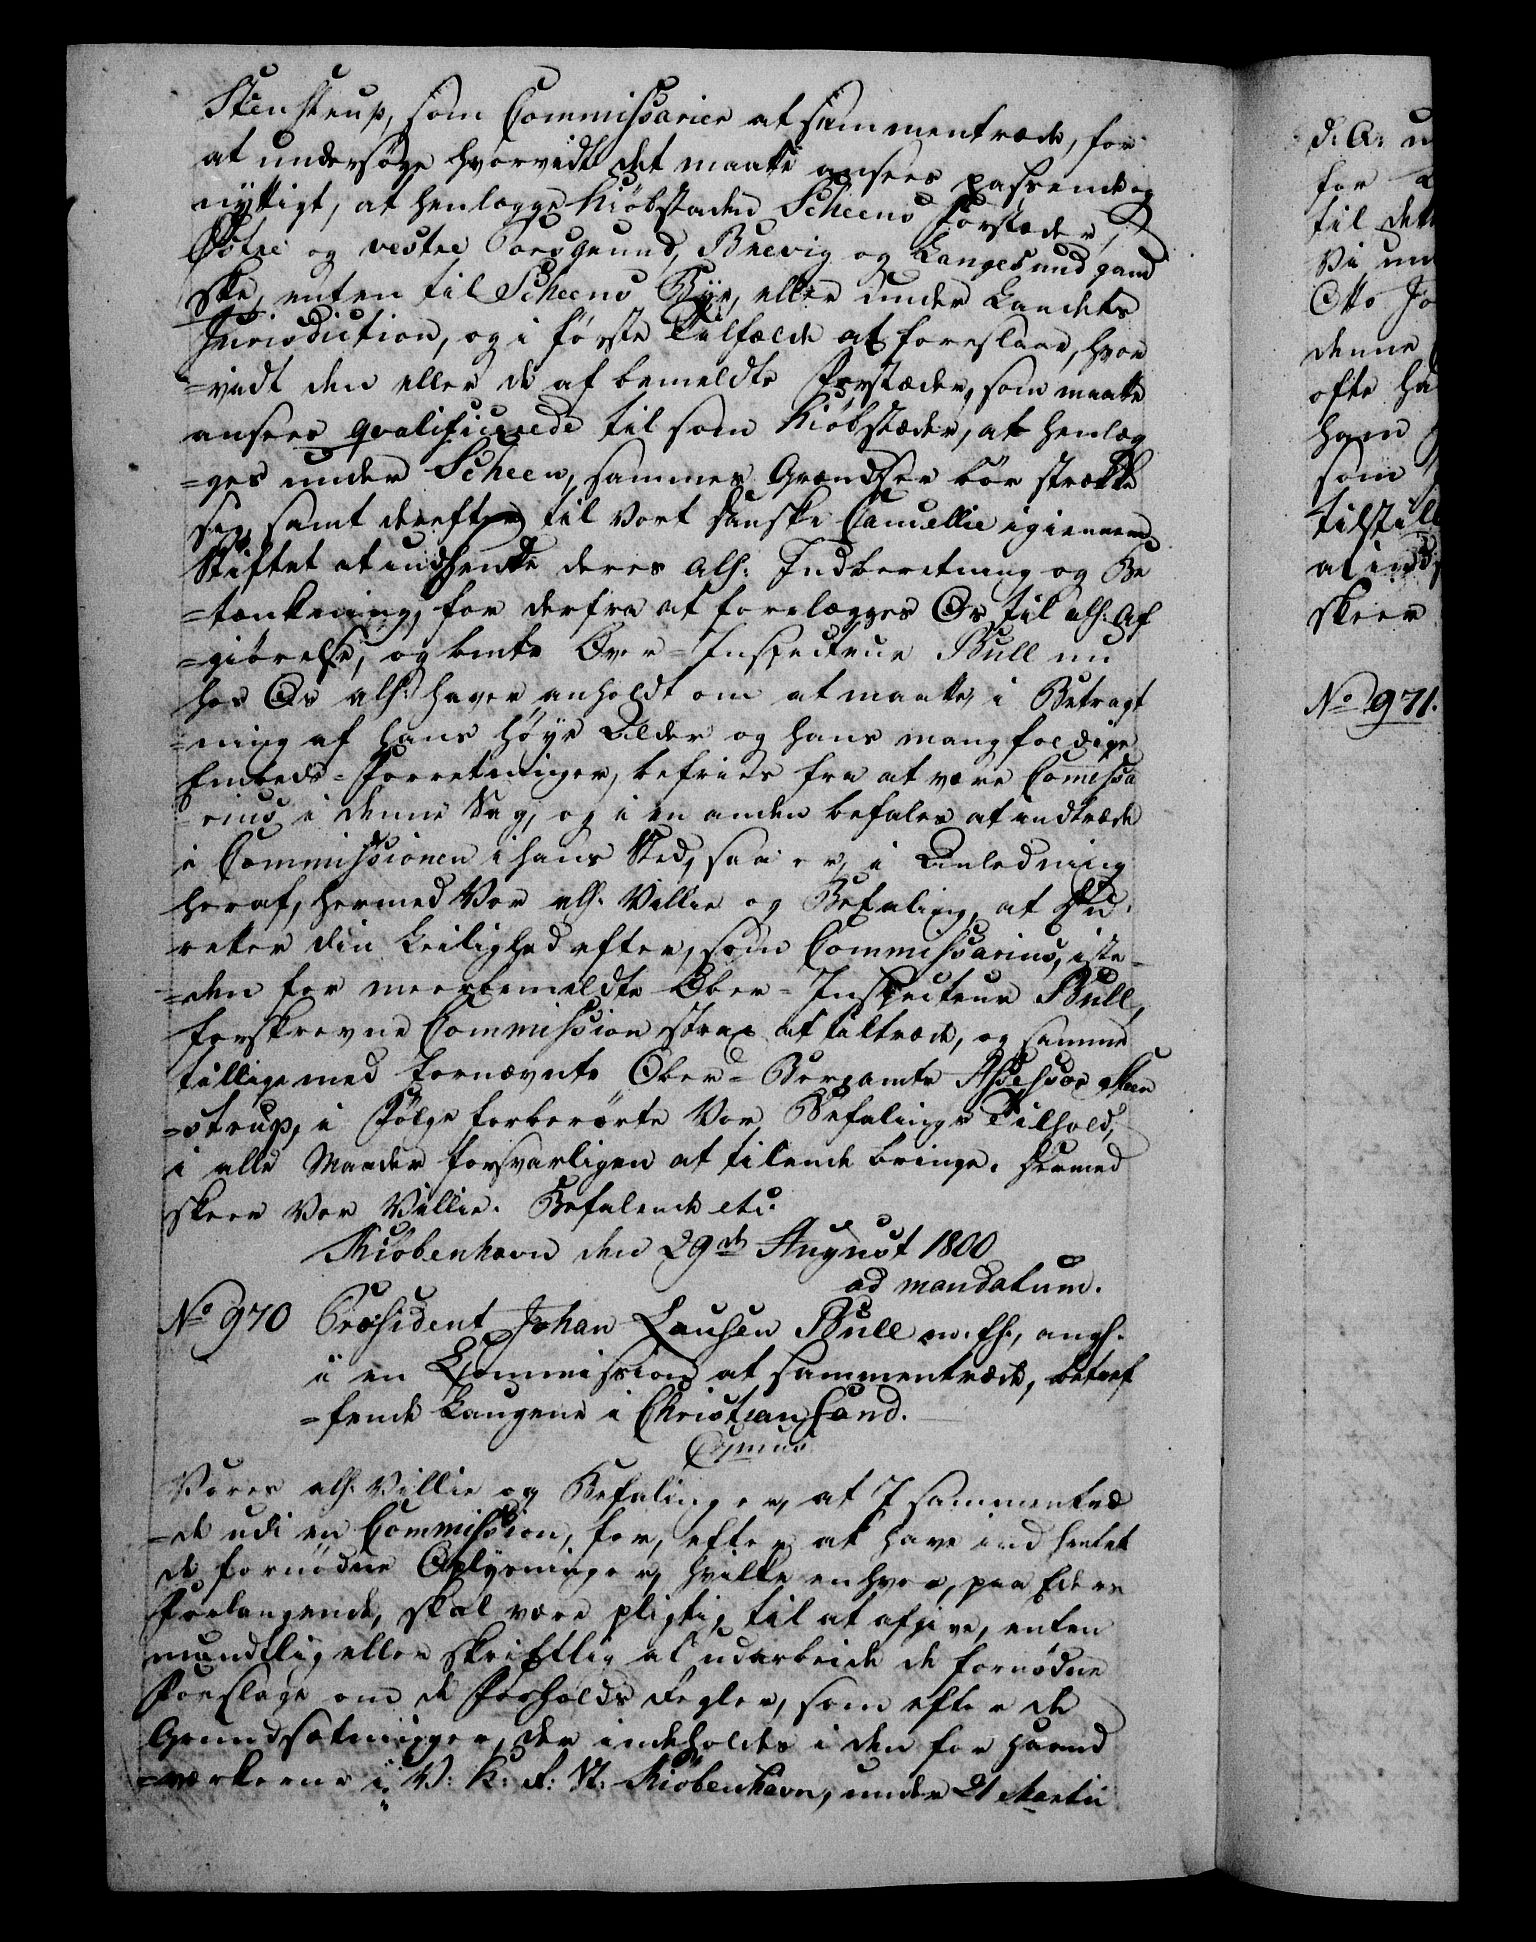 Stenstrup, som Commissarier at sammentræde, for
at undersøge hvorvidt det maatte ansees passende og
nyttigt, at henlægge Kiøbstaden Scheens Forstæder,
Østre og vestre Porsgrund, Brevig og Langesund gand
ske, enten til Scheens Bye, eller under Landets
Jurisdiction, og i første Tilfælde at foreslaae, hvor
=vidt den eller de af bemeldte Forstæder, som maatte
ansees qvalificerede til som Kiøbstæder, at henlæg
=ges under Scheen, sammes Grændser bør strække
sig, samt derefter til Vort danske Cancellie igiennem
Stiftet at indsende deres alh: Indberetning og Be
=tænkning, for derfra at forelægges Os til alh: Af
=giørelse, og bemte Over=Inspecteur Bull nu
hos Os alh: haver anholdt om at maatte, i Betragt
=ning af hans høye Alder og hans mangfoldige
Embeds=Forretninger, befries fra at være Comissa
=rius i denne Sag, og i en anden befales at indtræde
i Commissionen i hans Sted, saa er, i Anledning
heraf, hermed Vor alh: Villie og Befaling, at Du
retter din Leilighed efter, som Commissarius, iste=
=den for meerbemeldte Ober=Inspecteur Bull,
forskrevne Commission strax at tiltræde, og samme
tilligemed fornævnte Ober=Bergamts Assessor Sten
=strup, i Følge forberørte Vor Befalings Tilhold,
i alle Maader forsvarligen at tilende bringe. Hermed
skeer Vor Villie. Befalende etc.
Kiøbenhavn den 29de August 1800
ad mandatum.
No 970 Præsident Johan Lausen Bull m. fl., angl.
i en Commission at sammentræde, betref
=fende Laugene i Christiansand.
Vores alh: Villie og Befaling er, at I sammentræ
=de udi en Commission, for, efter at have indhentet
de fornødne Oplysninger, hvilke enhver, paa Eders
Forlangende, skal være pligtig til at afgive, enten
mundtlig eller skriftlig at udarbeide de fornødne
Forslage om de Forholds Regler, som efter de
Grundsætninger, der indeholdes i den for Haand
=værkerne i V: K: R: St: Kiøbenhavn, under 21 Martii
d: A: u
for
til det
Vi un
Otto Jo
denne
ofte ha
ham
som
tilstill
at ind
skeer
No 971.